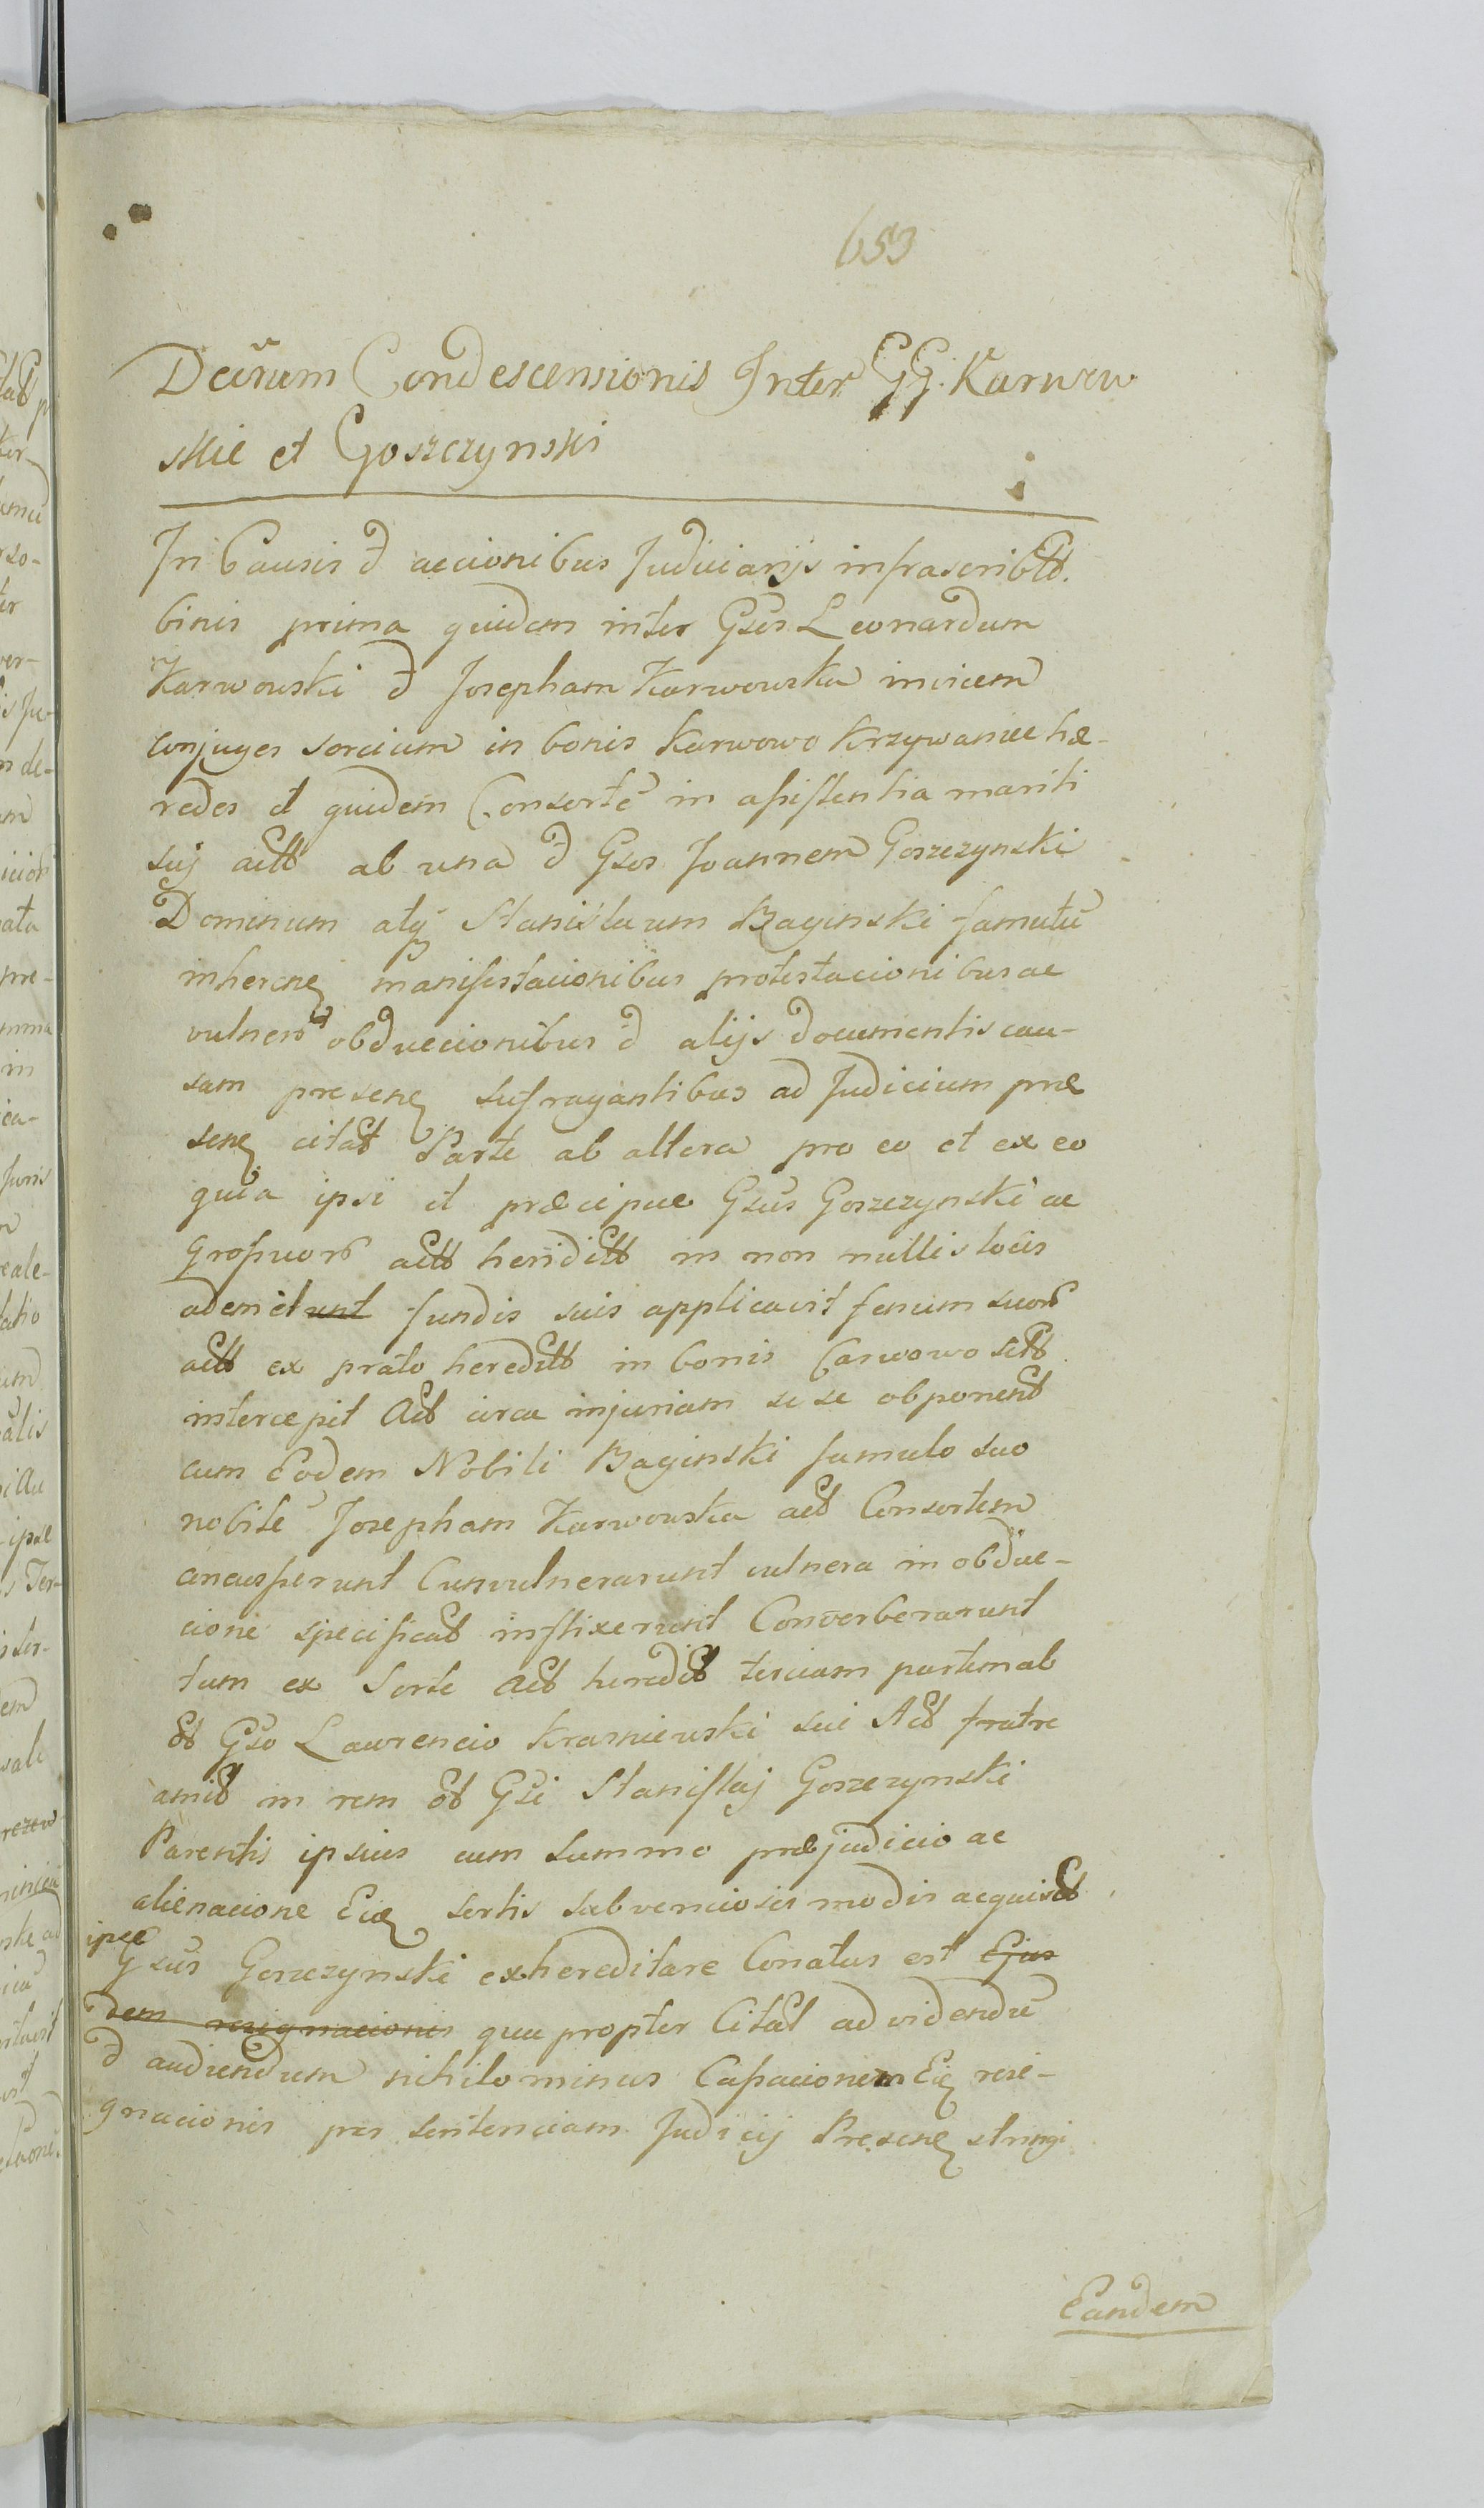 653
Decrum Condescensionis Inter GG. Karwow
skie et Goszczynski
In Causis & accionibus Judiciarijs infrascribtt.
binis prima quidem inter Gsos Leonardum
Karwowski & Josepham Karwowska invicem
conjuges sorcium in bonis Karwowo Krzywanice hæ-
redes et quidem Consorte in assistentia mariti
sui actt ab una & Gsos Joannem Goszczynski
Dominum atq Stanislaum Baginski famulu
inheren manifestacionibus protestacionibus ac
vulneru obduccionibus & alijs documentis cau-
sam presen sufragantibus ad Judicium præ
sen citatt Parte ab altera pro eo et ex eo
quia ipsi et præcipue Gsus Goszczynski ac
actt heriditt in non nullis locis
ademit unt fundis suis applicavit fenum suor
actt ex prato hereditt in bonis Carwowo sitt
intercepit Act circa injuriam se se obponent
cum Eodem Nobili Baginski famulo suo
nobile Josepham Karwowska act Consortem
Cunvulnerarunt vulnera in obduc-
cione specificatt inflixerunt Converberarunt
tum ex Sorte Act heredit terciam partem ab
olt Gso Laurencio Krasniewski sui Act fratre
amit in rem olt Gsi Stanislaj Goszczynski
Parentis ipsius cum summo præjudicio ac
alienacione Eie sortis subvenciosis modis acquisit
ipse
Gsus Goszczynski exhereditare Conatus est Ejus
dem resignacionis qua propter Citat ad videndu
& audiendum nihilominus Cassacionem Eie resi-
gnacionis per sentenciam Judicij Presen stringi
Eandem